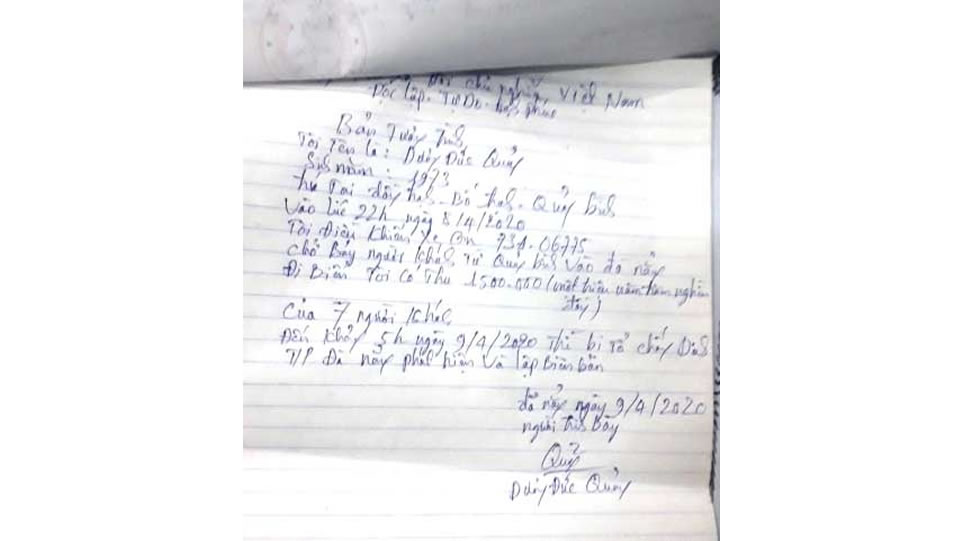 hội chủ nghĩa Việt Nam
Độc lập. Tự Do. hạnh phúc
Bản Tường Trình
Tôi Tên là : Dương Đức Quảng
Sinh năm : 1973
trú Tại đồng trạch - Bố trạch - Quảng bình
Vào lúc 22h ngày 8/4/2020
Tôi Điều khiển xe 06775
chở Bảy người khách từ Quảng bình vào đà nẵng
Đi Biển Tôi Có Thu 1500.000 (một triệu năm trăm nghìn
đồng)
Của 7 người khách
Đến khoảng 5h ngày 9/4/2020 thì bị Tổ chống Dịch
T/P Đà nẵng phát hiện và lập Biên bản
đà nẵng ngày 9/4/2020
người trình Bày
Quảng
Dương Đức Quảng